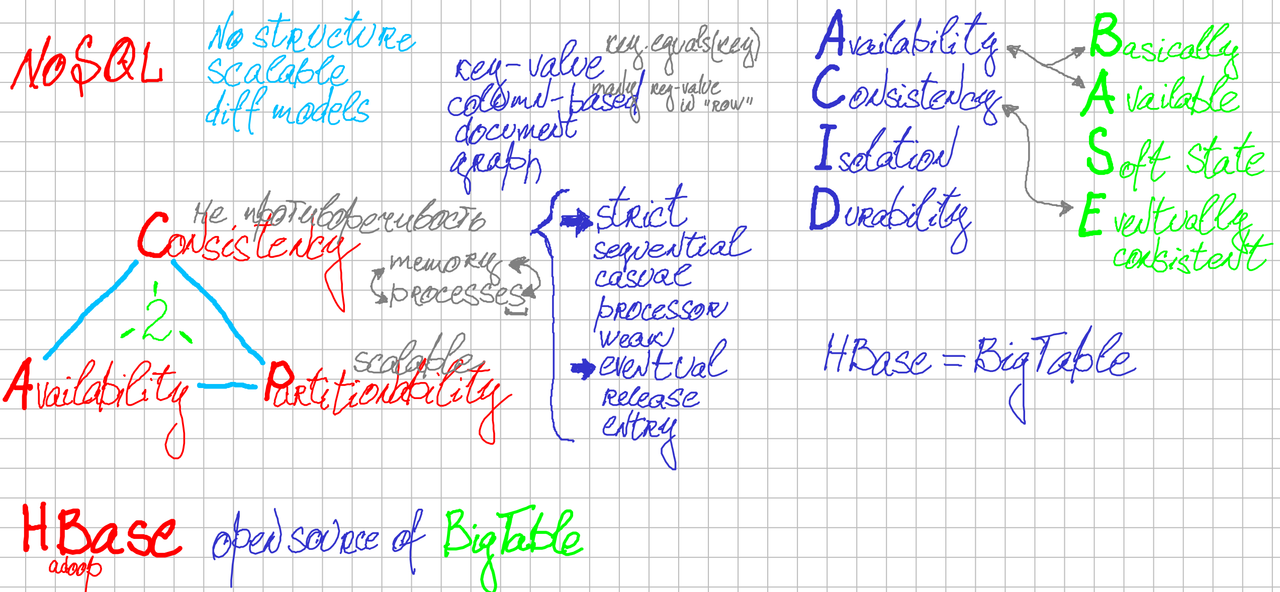 NoSQL
No structure
scalable
diff models
key-value
column-based
document
graph
key.equals(key)
many key-value
in "row"
Availability
Consistency
Isolation
Durability
Basically
Available
Soft State
Eventually
consistent
Не противоречивость
Consistency
memory
processes
2
scalable
Availability
Partitionability
strict
sequential
casual
processor
weak
eventual
release
entry
HBase = BigTable
HBase open source of BigTable
adoop